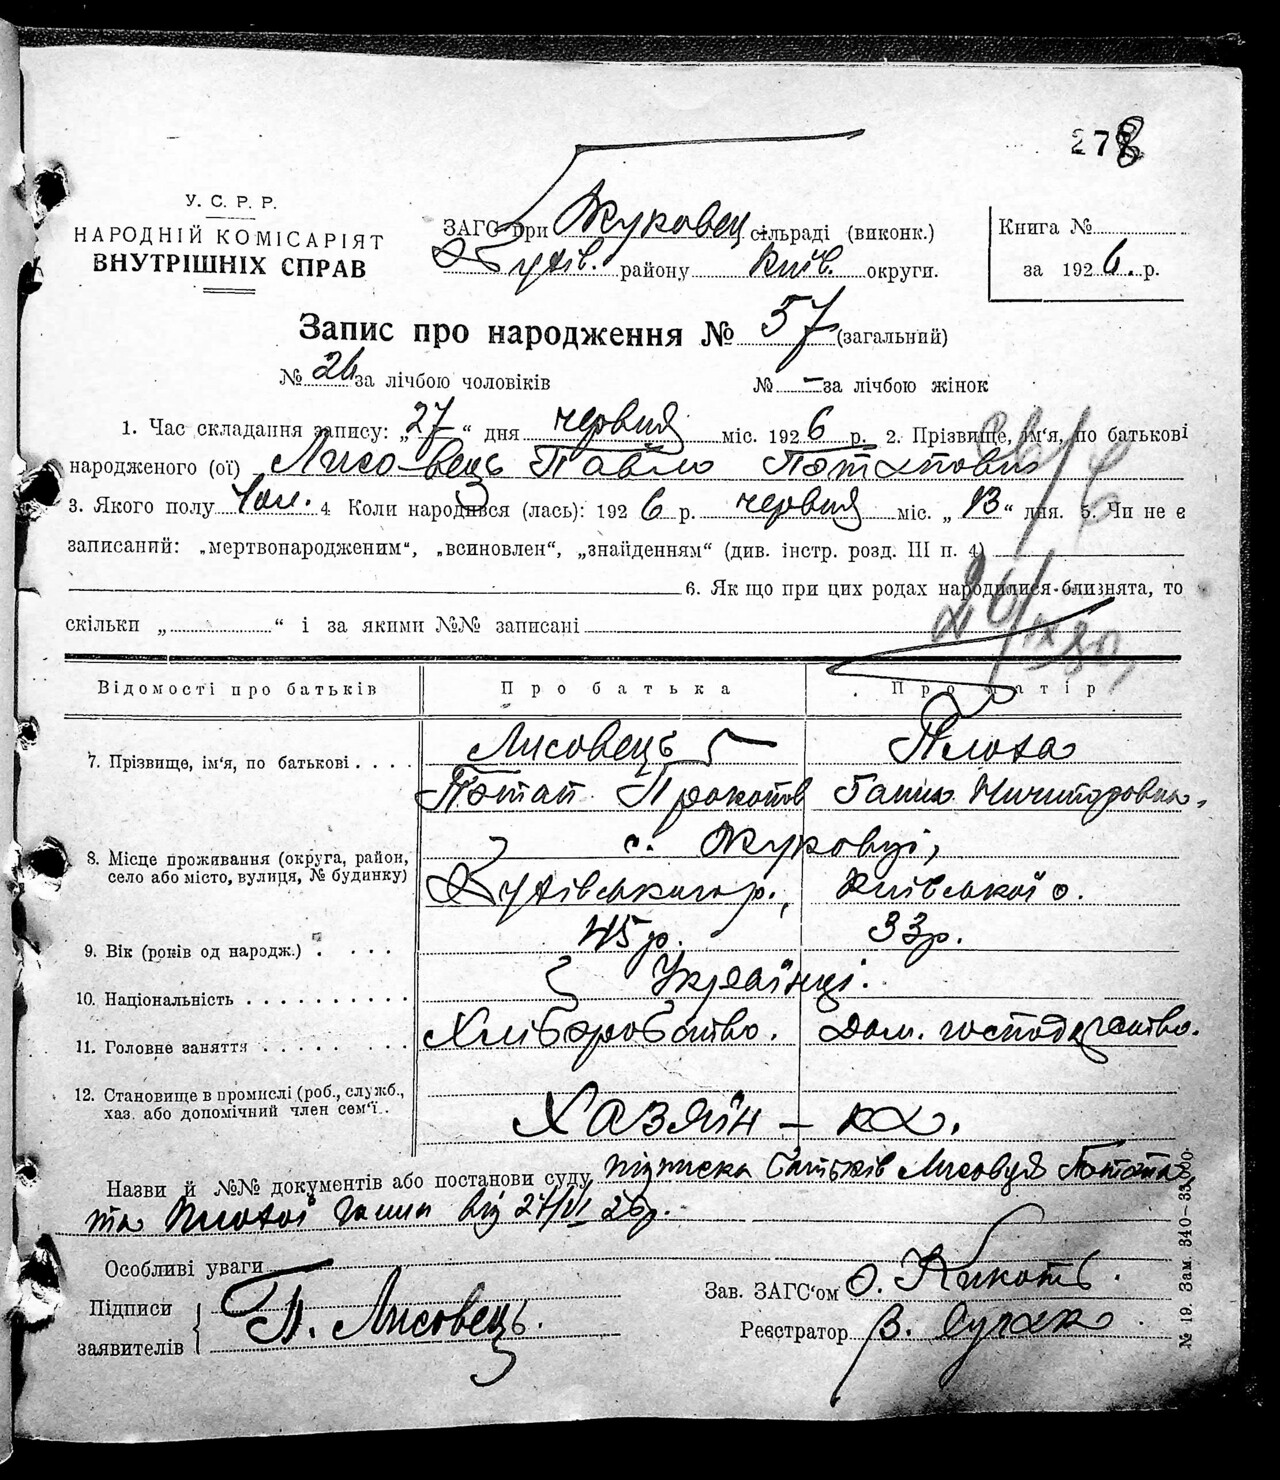 278
У. С. Р. Р.
НАРОДНІЙ КОМІСАРІЯТ
ВНУТРІШНІХ СПРАВ
ЗАГС при Жуковец сільраді (виконк.)
Бухів. району Київ. округи.
Книга №
за 1926. р.
Запис про народження № 57 (загальний)
№ 26 за лічбою чоловіків № – за лічбою жінок
1. Час складання запису: „27“ дня червня міс. 1926 р. 2. Прізвище, ім'я, по батькові
народженого (ої) Лисовець Павло Потапович
3. Якого полу Чол. 4 Коли народився (лась): 1926 р. червня міс. „13“ дня. 5. Чи не є
записаний: „мертвонародженим“, „всиновлен“, „знайденням“ (див. інстр. розд. III п. 4)
6. Як що при цих родах народилися близнята, то
скільки „ “ і за якими №№ записані
26/IX 30
Відомості про батьків Про батька Про матір
7. Прізвище, ім'я, по батькові Лисовець Плоха
Потап Прокопов Ганна Ничипоровна,
8. Місце проживання (округа, район, село або місто, вулиця, № будинку) с. Жуковці,
Бухівського р., Київської о.
9. Вік (років од народж.) 45 р. 33 р.
10. Національність Українці.
11. Головне заняття Хліборобство. Дом. господарство.
12. Становище в промислі (роб., служб.,
хаз. або допомічний член сем'ї. Хазяїн –
Назви й №№ документів або постанови суду підписка батьків Лисовця Потапа
та Плохої Ганни від 27/VI 26 р.
Особливі уваги
Підписи
заявителів П. Лисовець.
Зав. ЗАГС'ом О. Кикоть.
Реєстратор В.
№ 19. Зам. 340–33.000.